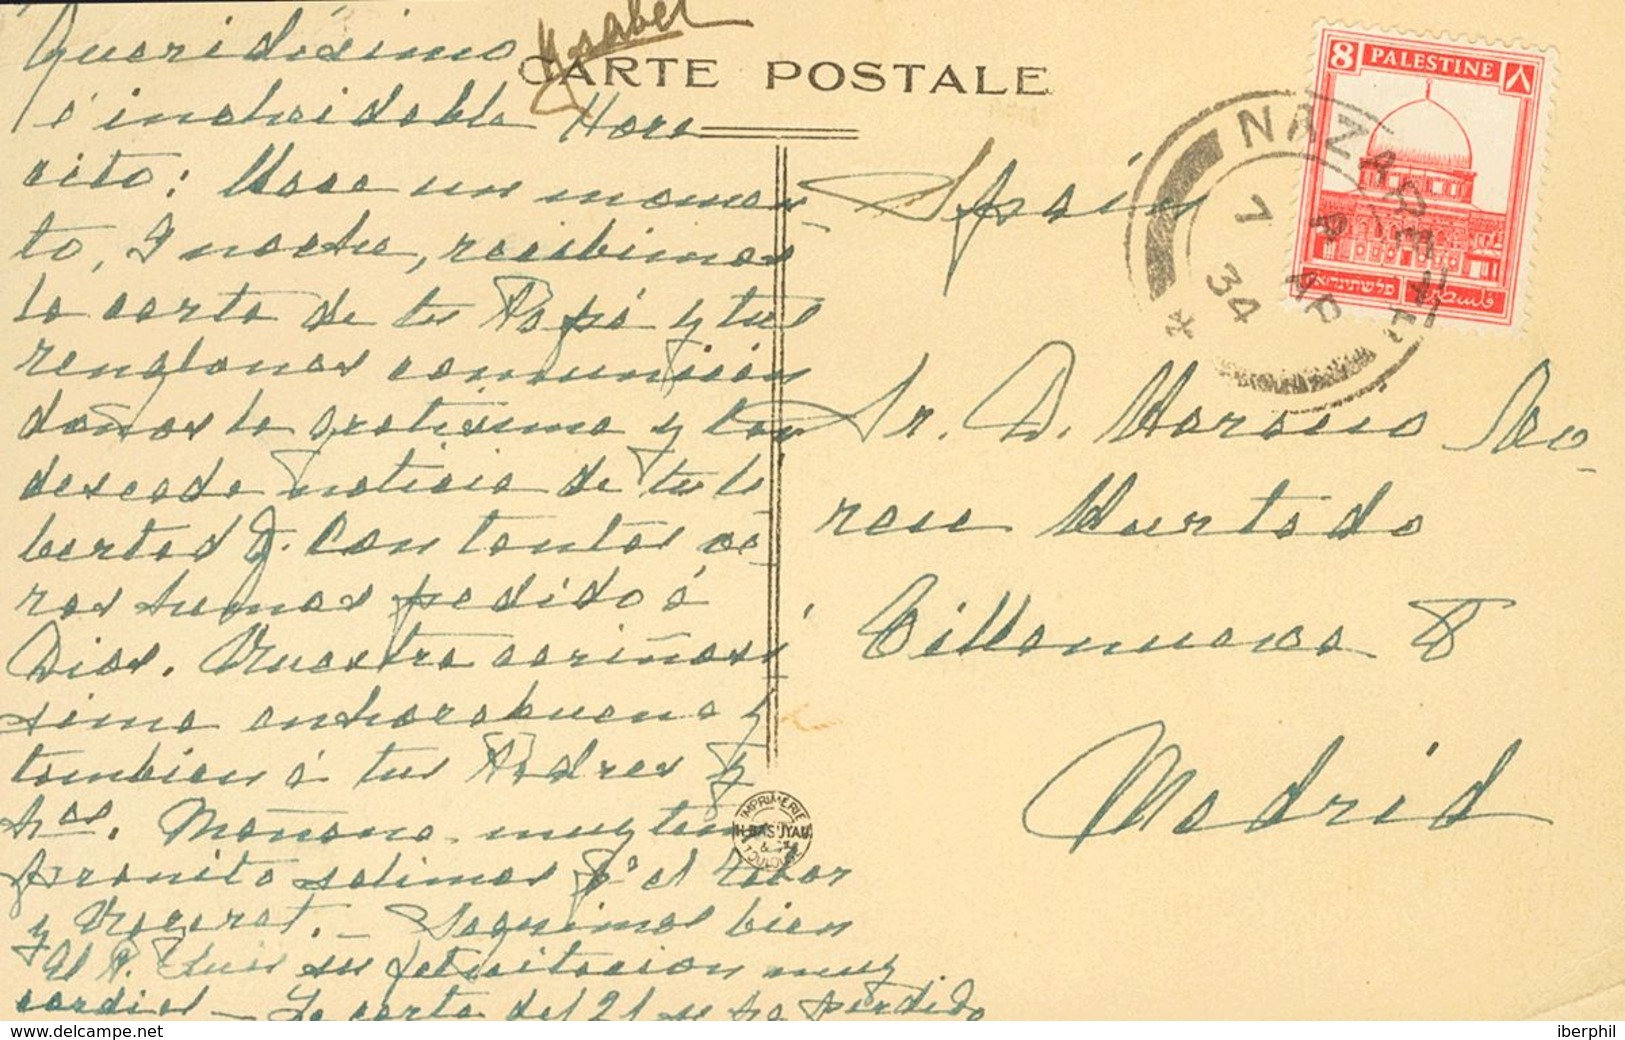 Ysabel
CARTE POSTALE
Queridísimo
é inolvidable Hora
cito: Hace un momen
to, I noche, recibimos
la carta de tu Papá y tus
renglones comunicán
donos la gratísima y tan
deseada noticia de tu li
bertad Q. con tantas ve
ras hemos pedido á
Dios. Nuestra cariñosí
sima enhorabuena y
tambien á tus Padres y
hos. Mañana muy tem
pranito salimos pª el Tabor
y Nazaret. — Seguimos bien
Al P. Luis su felicitacion muy
cordial — La carta del 21 se ha perdido
8 PALESTINE ٨
פלשתינה א״י فلسطين
NAZARETH
7 AP
34
Spain
Sr. D. Horacio
Hurtado
Villanueva 8
Madrid
IMPRIMERIE
TOULOUSE
iberphil